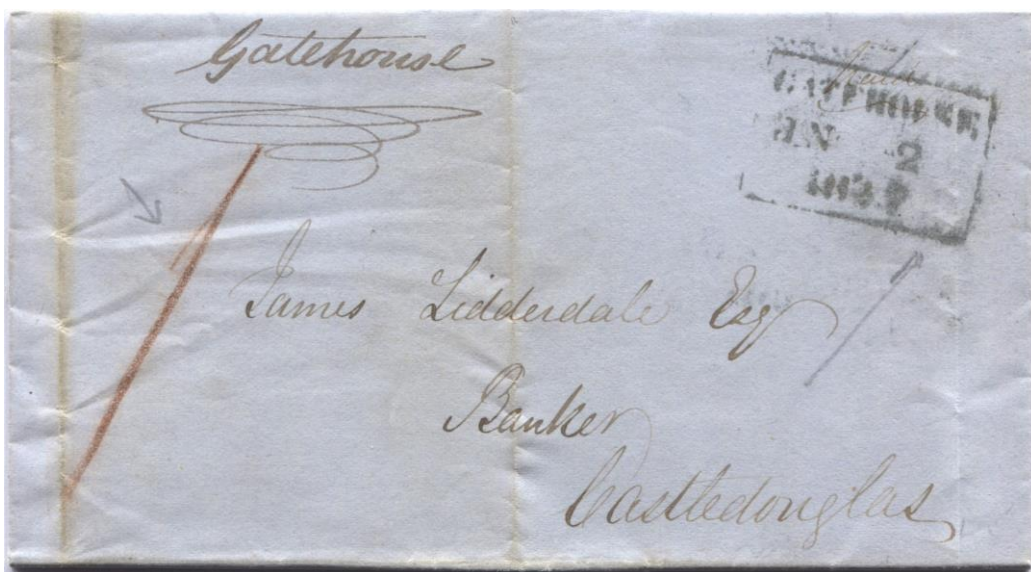 Gatehouse
GATEHOUSE
JAN 2
1
James Lidderdale Esq
Banker
Castledouglas